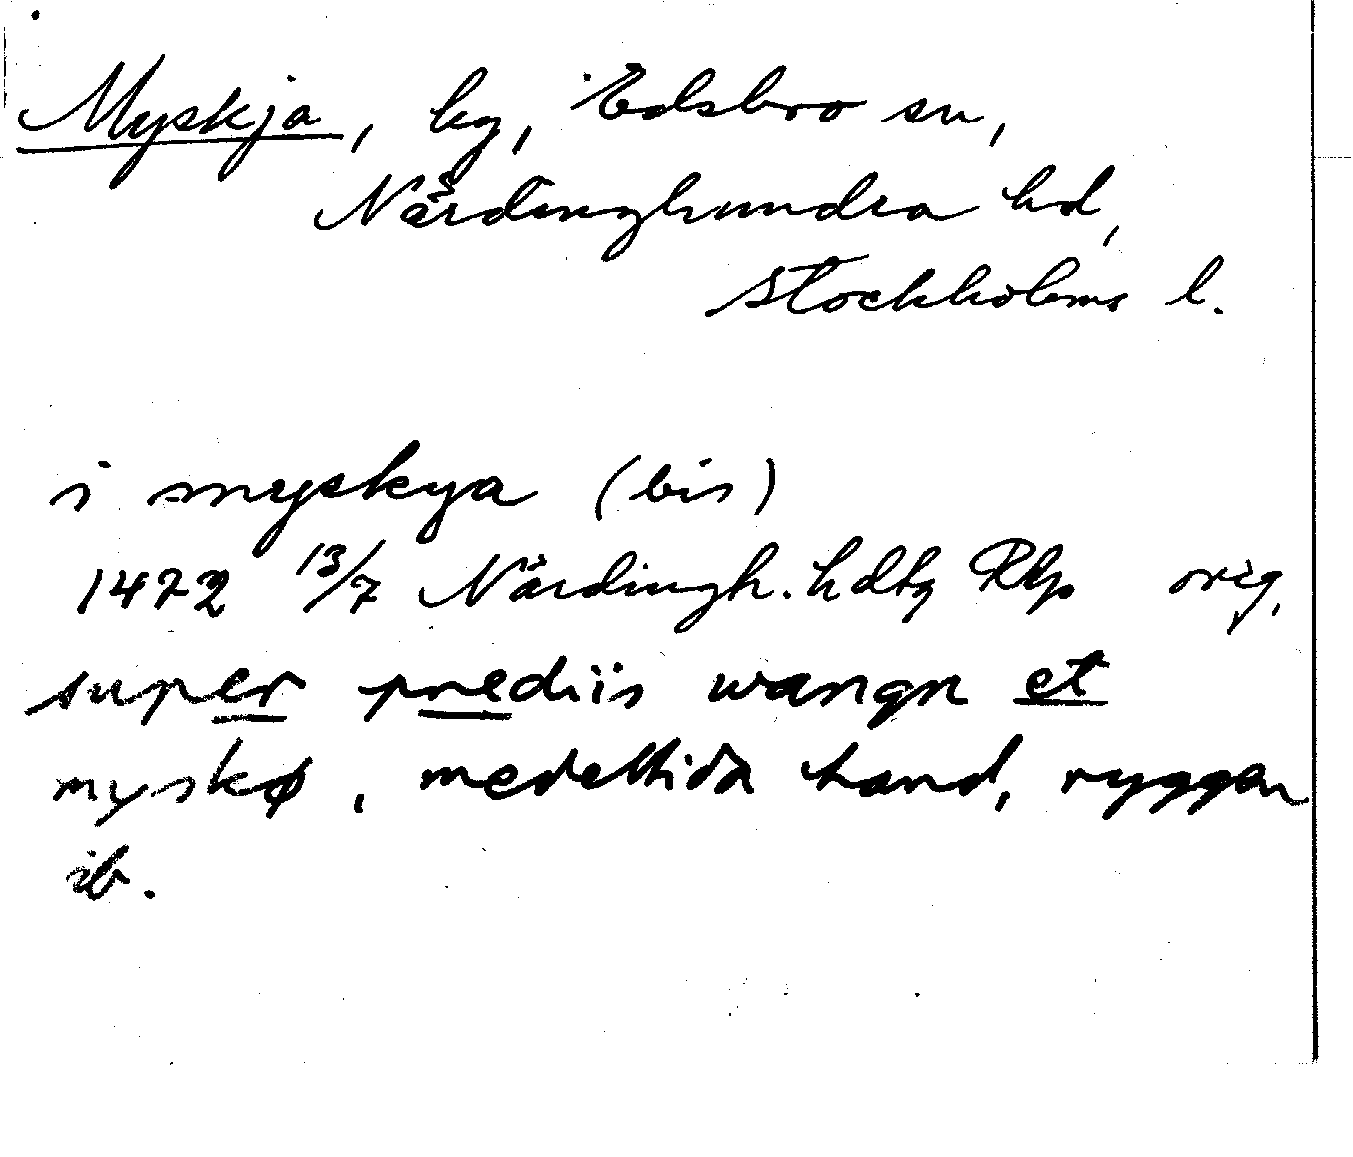 Myskja, by, Edsbro sn,
Närdinghundra hd,
Stockholms l.
i myskya (bis)
1472 13/7 Närdingh. hdtg Rkp orig.
super prediis wangn et
myskø, medeltida hand, ryggen
ib.